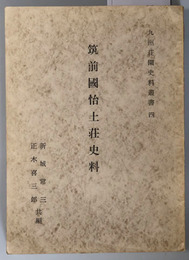 九州荘園史料叢書 四
筑前國怡土荘史料
新城常三
正木喜三郎 共編